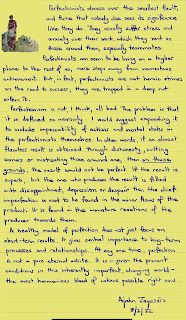 Perfectionists obsess over the smallest fault,
and fume that nobody else sees its significance
like they do. They usually suffer stress and
anxiety over their work, which they wreak on
those around them, especially teammates.
Perfectionists can seem to be living on a higher
plane to the rest of us, mere steps away from marvellous
achievement. But, in fact, perfectionists are not heroic strivers
on the road to success; they are trapped in a deep rut
within it.
Perfectionism is not, I think, all bad. The problem is that
it is defined so narrowly. I would suggest expanding it
to include impeccability of actions and mental states in
the perfectionists themselves. In other words, if an almost
flawless result is obtained through dishonesty, cutting
corners or mistreating those around one, then on those
grounds, the result would not be perfect. If the result is
superb, but the one who produces the result is filled
with disappointment, depression or despair then the chief
imperfection is not to be found in the minor flaws of the
product. It is found in the immature reactions of the
producer towards them.
A healthy model of perfection does not just focus on
short-term results. It gives central importance to long-term
processes and relationships. At any one time, perfection
is not a pure eternal white. It is - given the present
conditions in this inherently imperfect, changing world -
the most harmonious blend of colours possible right now.
Ajahn Jayasāro